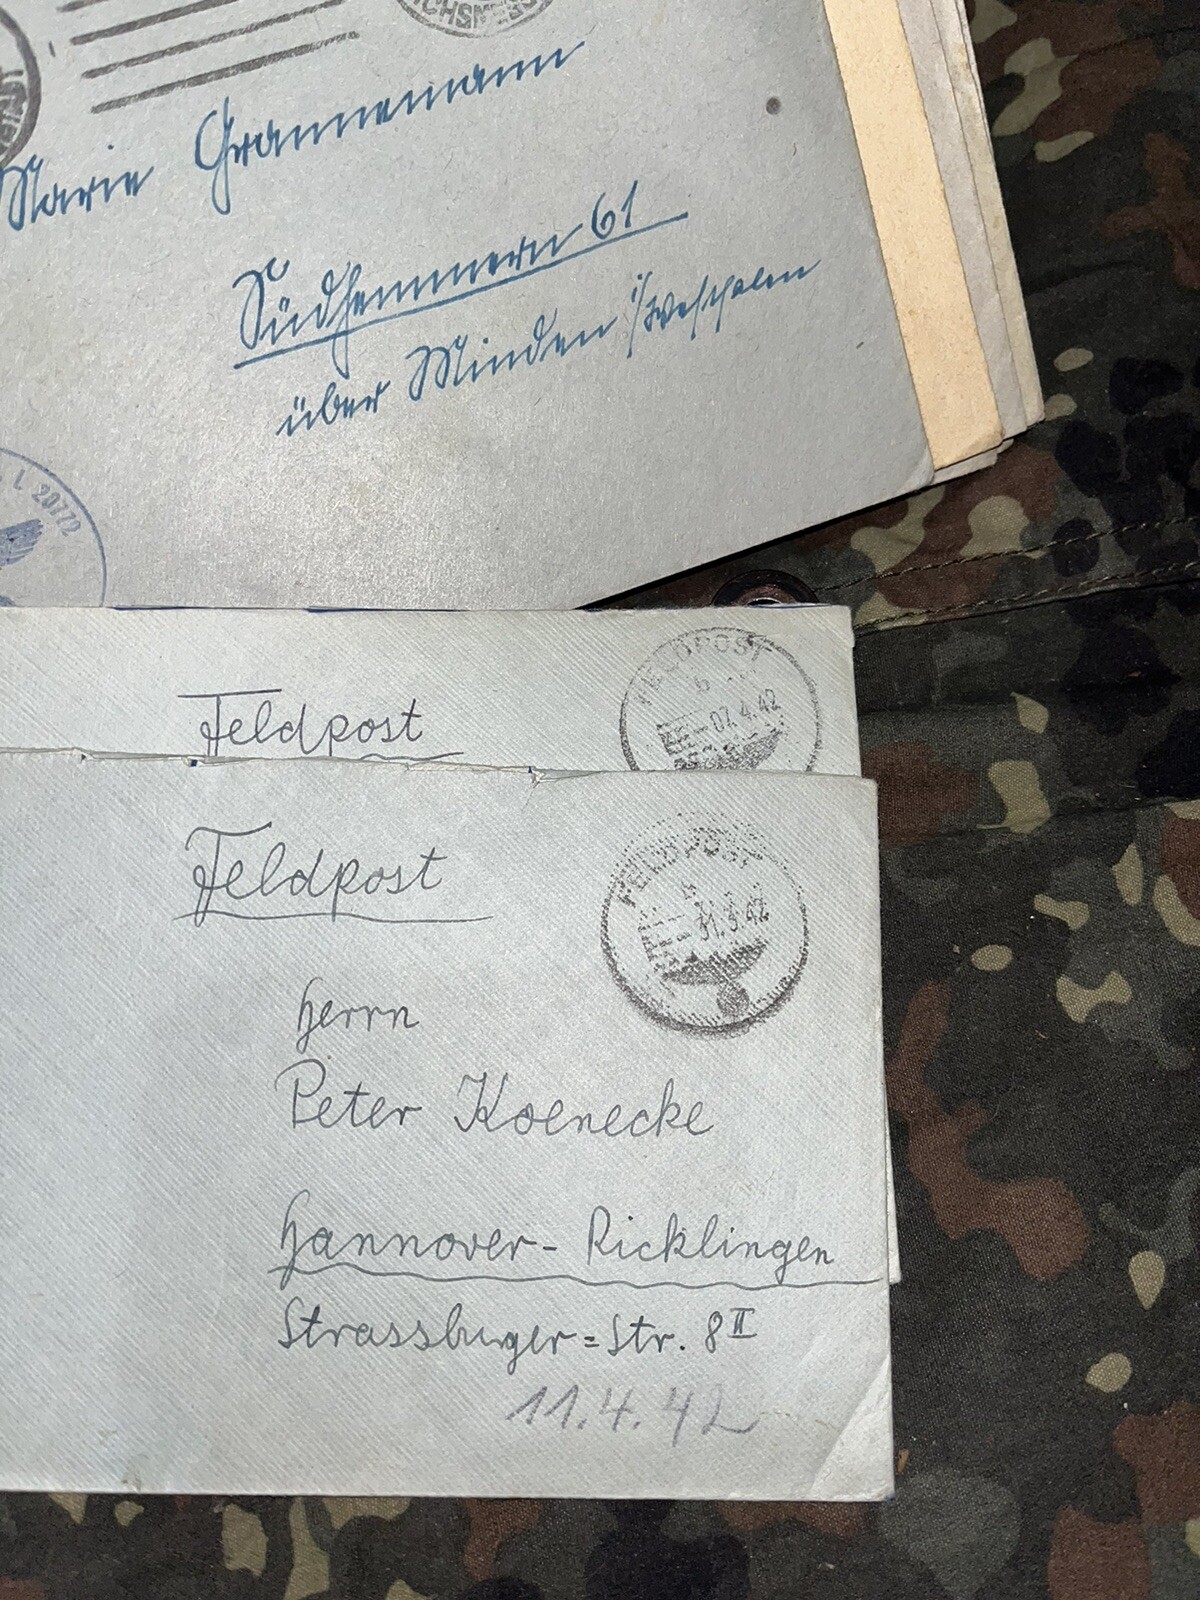 Marie Grannemann
Südhemmern 61
über Minden i/Westfalen
L 20772
Feldpost
FELDPOST
b
-07.4.42
Feldpost
FELDPOST
b
31.3.42
Herrn
Peter Koenecke
Hannover-Ricklingen
Strassburger=Str. 8 II
11.4.42